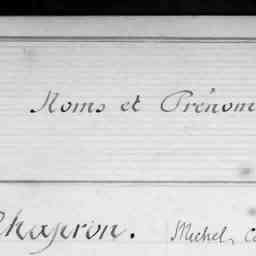 Noms et Prénom
Chapron. Michel, C